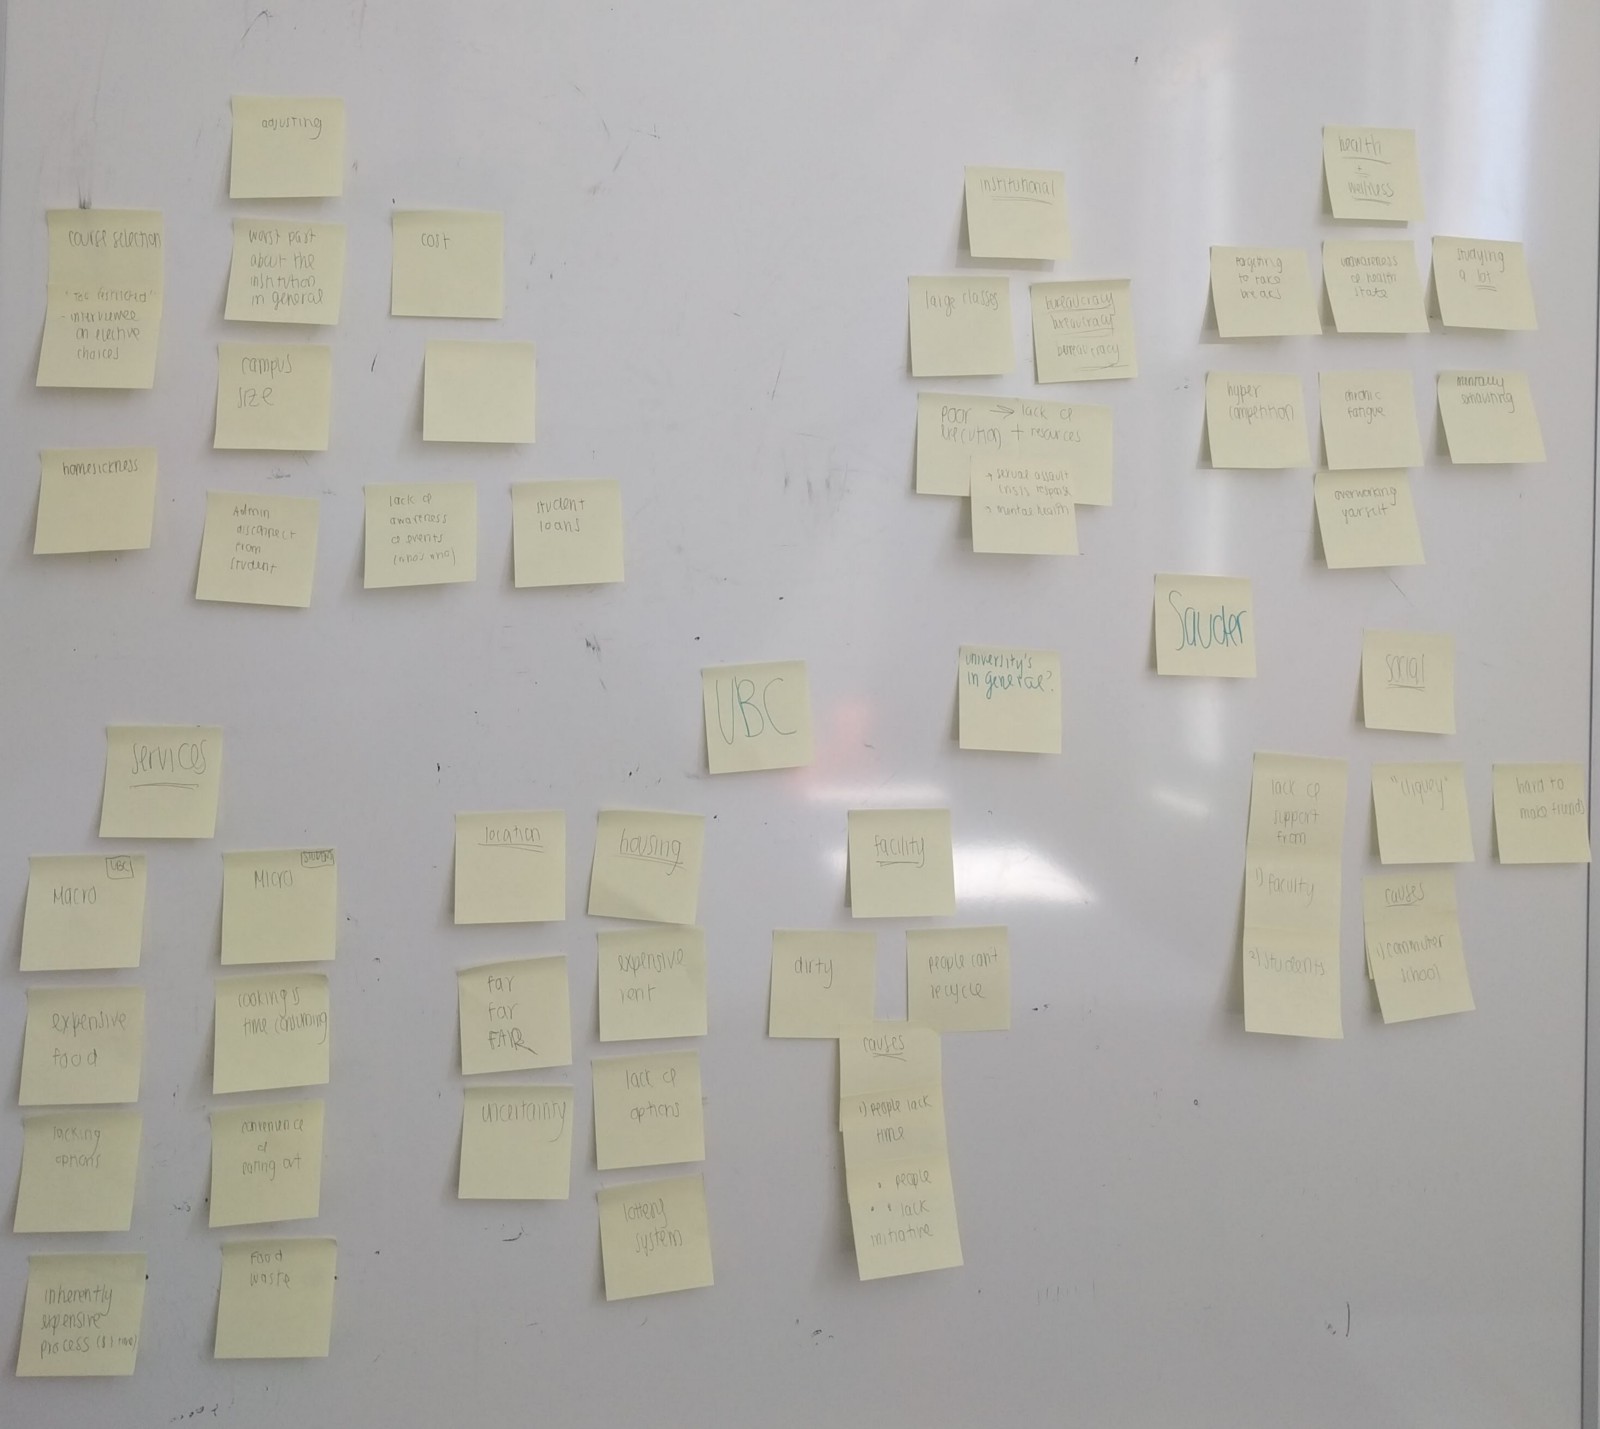 adjusting
course selection
"too restricted"
- interviewee
on elective
choices
worst part
about the
institution
in general
cost
campus
size
homesickness
Admin
disconnect
from
student
lack of
awareness
of events
student
loans
institutional
large classes
bureaucracy
bureaucracy
bureaucracy
poor → lack of
execution + resources
→ sexual assault
crisis response
→ mental health
health
+
wellness
forgetting
to take
breaks
unawareness
of health
state
studying
a lot
hyper
competition
chronic
fatigue
mentally
exhausting
overworking
yourself
Sauder
UBC
university's
in general?
social
lack of
support
from
1) faculty
2) students
"cliquey"
hard to
make friends
causes
1) commuter
school
services
UBC
Macro
expensive
food
lacking
options
inherently
expensive
process ($ | time)
student
Micro
cooking is
time consuming
convenience
of
eating out
Food
waste
location
far
far
FAR
uncertainty
housing
expensive
rent
lack of
options
lottery
system
facility
dirty
people can't
recycle
causes
1) people lack
time
people
lack
initiative